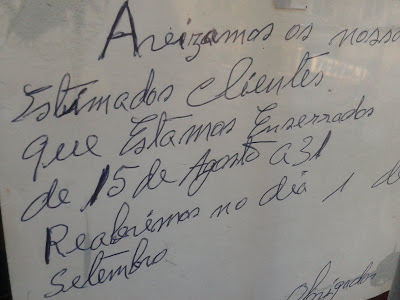 Aveizamos os nosso
Estimados clientes.
que Estamos Enserrados
de 15 de Agosto A 31
Reabrimos no dia 1 de
Setembro
Obrigados